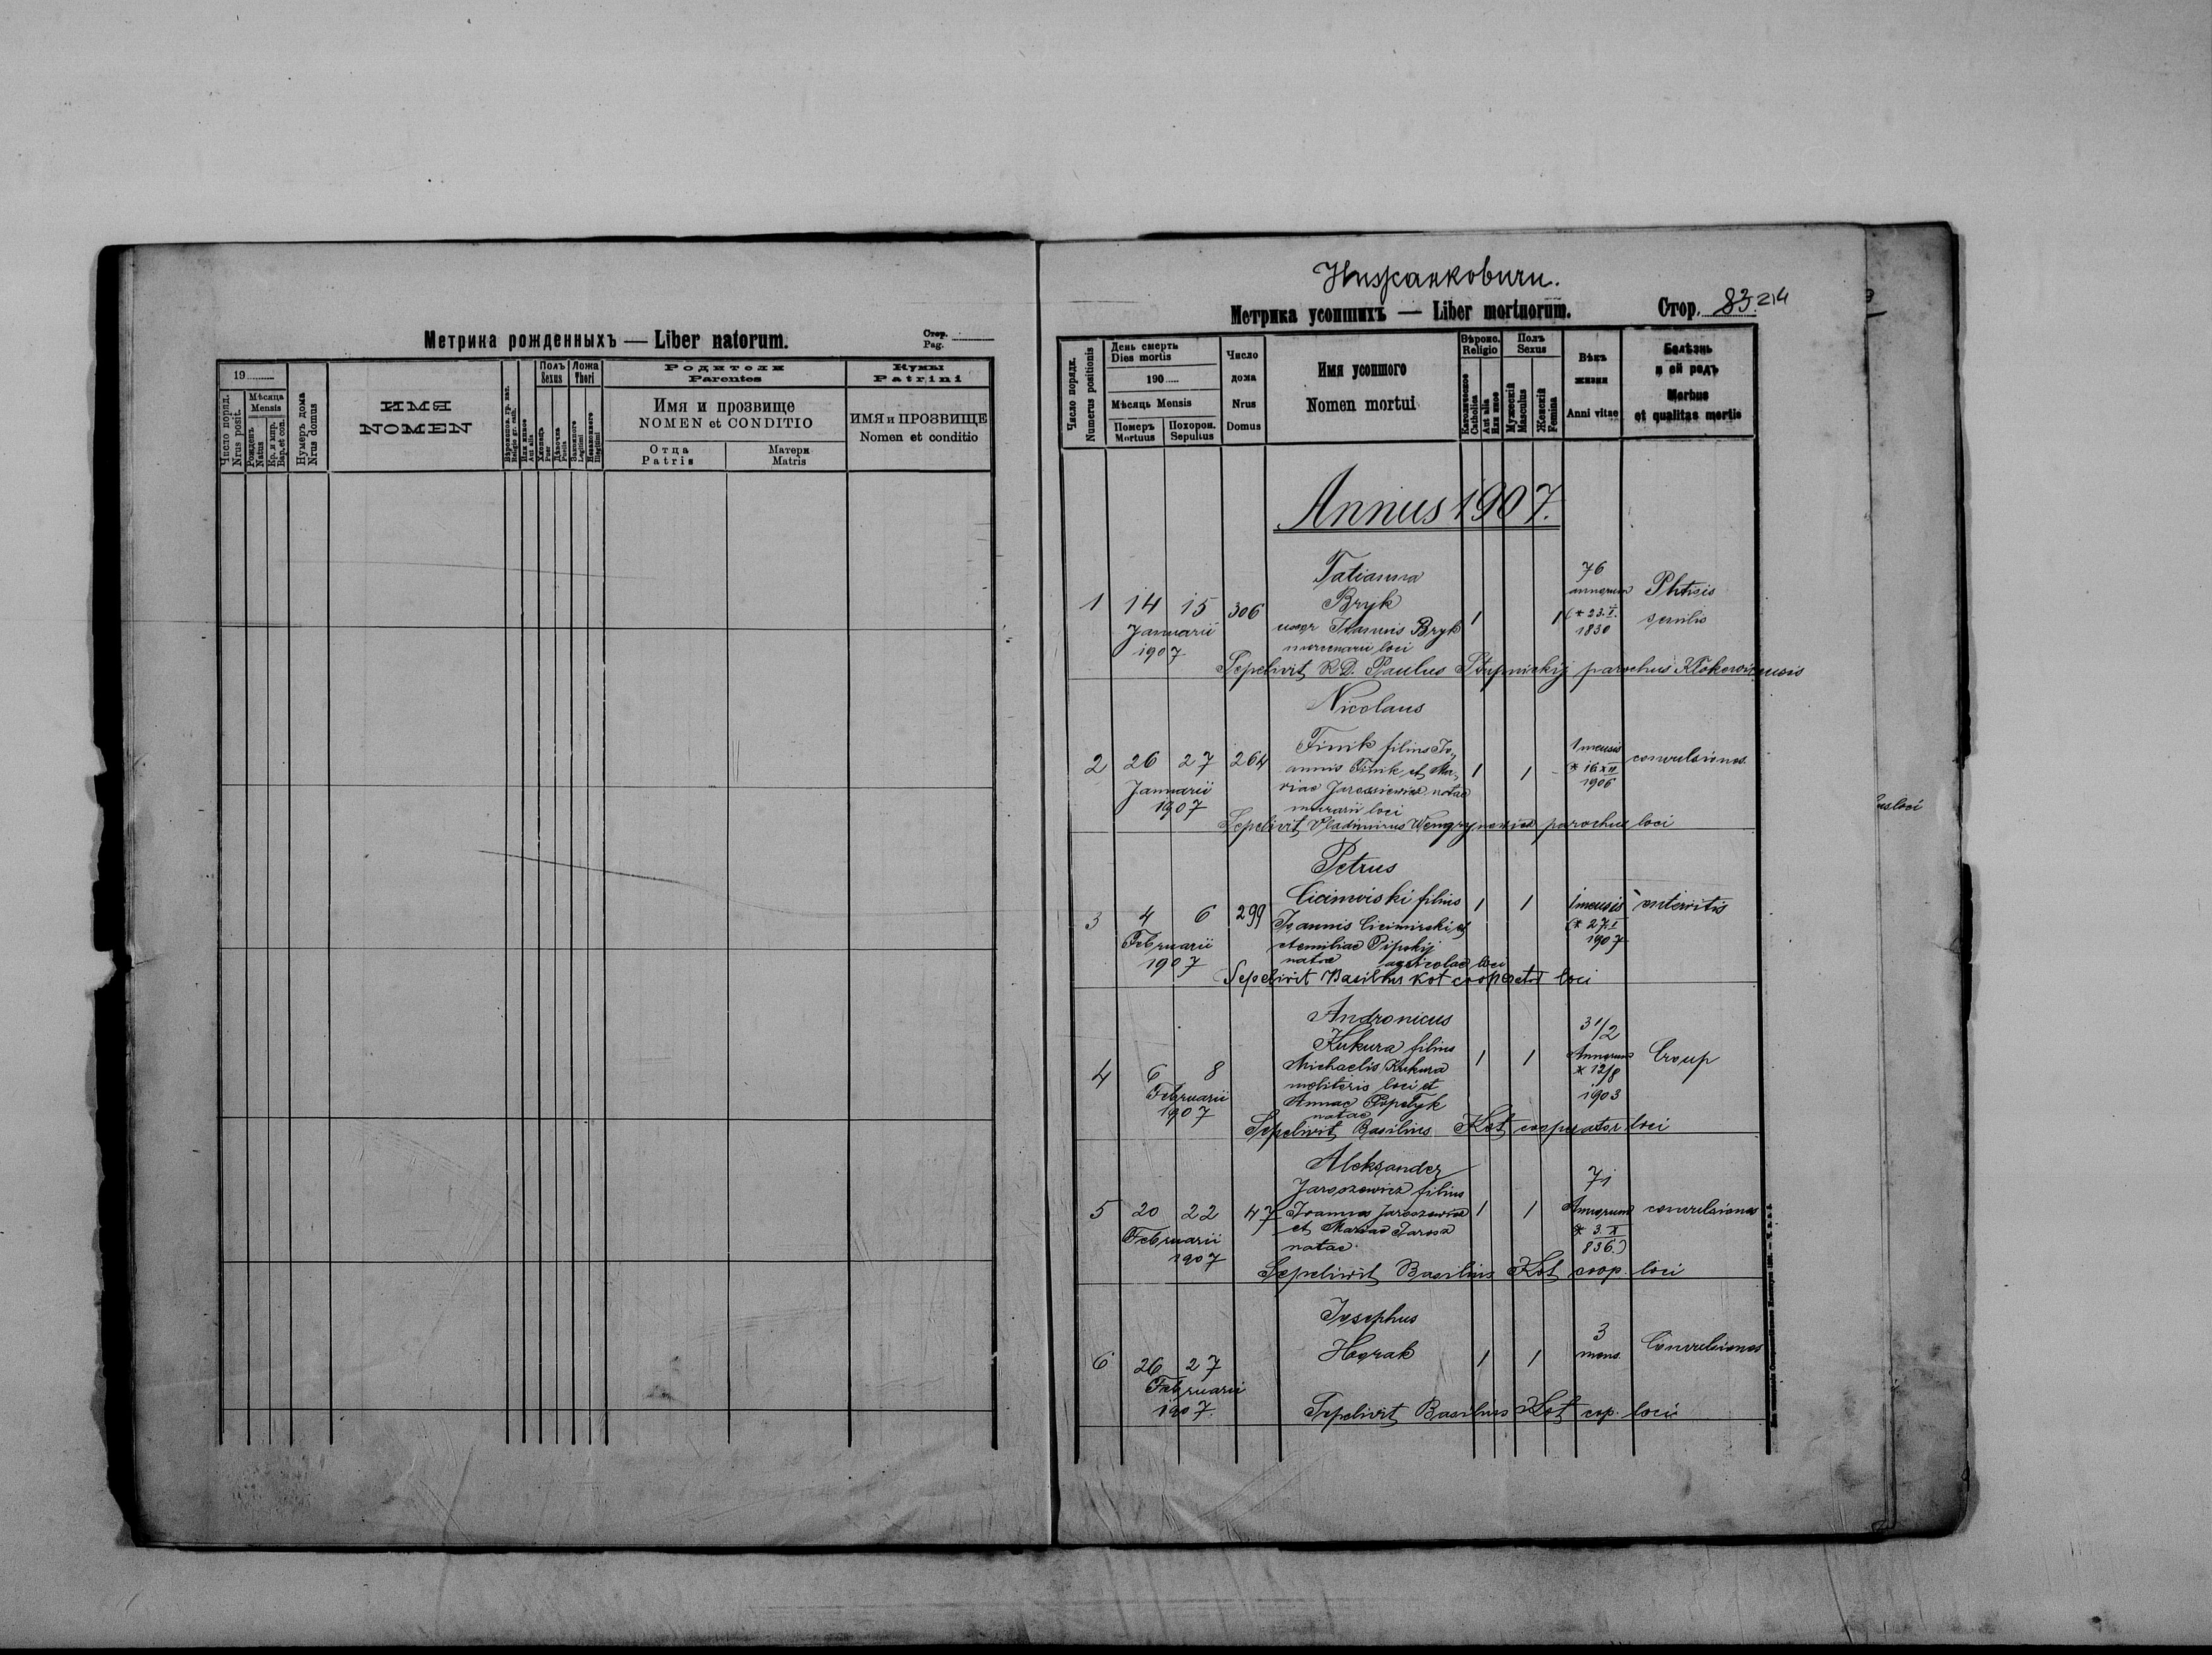 Метрика рожденныхъ — Liber natorum.
Стор.
Pag.
19
Число поряд.
Nrus posit.
Мѣсяца
Mensis
Рожденъ
Natus
Кр. и мир.
Bap. et con.
Нумеръ дома
Nrus domus
ИМЯ
NOMEN
Или иное
Aut alia
Полъ
Sexus
Хлопецъ
Puer
Дѣвочка
Puella
Ложа
Thori
Законного
Legitimi
Незаконного
Illegitimi
Родители
Parentes
Имя и прозвище
NOMEN et CONDITIO
Отца
Patris
Матери
Matris
Кумы
Patrini
ИМЯ и ПРОЗВИЩЕ
Nomen et conditio
Нижанковичи.
Метрика усопшихъ — Liber mortuorum.
Стор. 83. 214
Число порядк.
Numerus positionis
День смерть
Dies mortis
190
Мѣсяць Mensis
Померъ
Mortuus
Похорон.
Sepultus
Число
дома
Nrus
Domus
Имя усопшого
Nomen mortui
Вѣроис.
Religio
Католическое
Catholica
Aut alia
Или иное
Полъ
Sexus
Мужескій
Masculus
Женскій
Femina
Вѣкъ
жизни
Anni vitae
Болѣзнь
и ей родъ
Morbus
et qualitas mortis
Annus 1907.
1 14 15 306
Januarii
1907
Tatianna
Bryk
uxor Ioannis Bryk
mercenarii loci
1 1
76
annorum
(* 23. I.
1830
Phtisis
senilis
Sepelivit R.D. Paulus Stupnickij parochus
2 26 27 264
Januarii
1907
Nicolaus
Finik filius Jo„
annis Finik et Ma„
riae natae
murarii loci
1 1
1 mensis
* 16 XII
1906
convulsiones.
Sepelivit Vladimirus Wengrynowicz parochus loci
3 4 6 299
Februarii
1907
Petrus
filius
Ioannis et
Aemiliae Pipskij
natae agricolae loci
1 1
1 mensis
(* 27 I
1907
enteritis
Sepelivit Basilius Kot cooperator loci
4 6 8
Februarii
1907
Andronicus
Kukura filius
Michaelis Kukura
molitoris loci et
Annae
natae
1 1
3 1/2
Annorum
* 12/8
1903
Croup
Sepelivit Basilius Kot cooperator loci
5 20 22 47
Februarii
1907
Aleksander
Jaroszewicz filius
Ioannis Jaroszewicz
et Mariae Jarosz
natae
1 1
71
Annorum
* 3. X
836.)
convulsiones
Sepelivit Basilius Kot coop. loci
6 26 27
Februarii
1907.
Iosephus
Horak
1 1
3
mens.
Convulsiones
Sepelivit Basilius Kot cop. loci